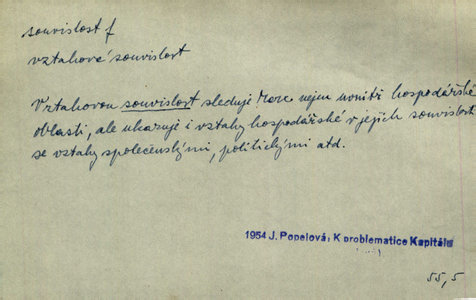 souvislost f
vztahová souvislost
Vztahovou souvislost sleduje Marx nejen uvnitř hospodářské
oblasti, ale ukazuje i vztahy hospodářské v jejich souvislosti
se vztahy společenskými, politickými atd.
1954 J. Popelová: K problematice Kapitálu
55,5